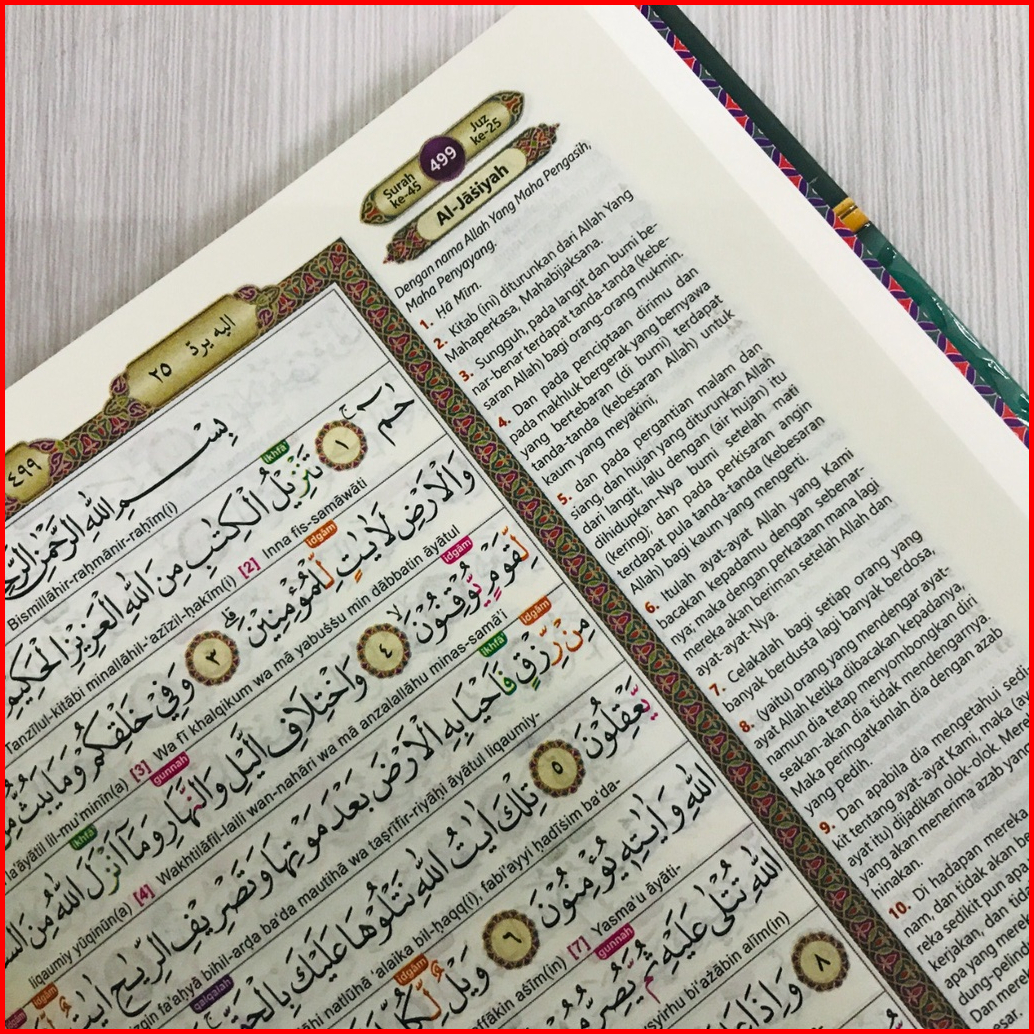 Surah ke-45
499
Juz ke-25
Al-Jāṡiyah
Dengan nama Allah Yang Maha Pengasih,
Maha Penyayang.
1. Ḥā Mīm.
2. Kitab (ini) diturunkan dari Allah Yang
Mahaperkasa, Mahabijaksana.
3. Sungguh, pada langit dan bumi be-
nar-benar terdapat tanda-tanda (kebe-
saran Allah) bagi orang-orang mukmin.
4. Dan pada penciptaan dirimu dan
pada makhluk bergerak yang bernyawa
yang bertebaran (di bumi) terdapat
tanda-tanda (kebesaran Allah) untuk
kaum yang meyakini,
5. dan pada pergantian malam dan
siang dan hujan yang diturunkan Allah
dari langit, lalu dengan (air hujan) itu
dihidupkan-Nya bumi setelah mati
(kering); dan pada perkisaran angin
terdapat pula tanda-tanda (kebesaran
Allah) bagi kaum yang mengerti.
6. Itulah ayat-ayat Allah yang Kami
bacakan kepadamu dengan sebenar-
nya; maka dengan perkataan mana lagi
mereka akan beriman setelah Allah dan
ayat-ayat-Nya.
7. Celakalah bagi setiap orang yang
banyak berdusta lagi banyak berdosa,
8. (yaitu) orang yang mendengar ayat-
ayat Allah ketika dibacakan kepadanya,
namun dia tetap menyombongkan diri
seakan-akan dia tidak mendengarnya.
Maka peringatkanlah dia dengan azab
yang pedih.
9. Dan apabila dia mengetahui sedi-
kit tentang ayat-ayat Kami, maka (a
ayat itu) dijadikan olok-olok. Mere
yang akan menerima azab yang
hinakan.
10. Di hadapan mereka
nam, dan tidak akan be
reka sedikit pun apa
kerjakan, dan tida
apa yang merek
dung-pelind
Dan merek
esar.
اليه يرة ٢٥
٤٩٩
بِسْمِ اللّٰهِ الرَّحْمٰنِ
Bismillāhir-raḥmānir-raḥīm(i)
حٰمۤ ۚ ١ تَنْزِيْلُ الْكِتٰبِ مِنَ اللّٰهِ الْعَزِيْزِ الْحَكِيْمِ
ikhfā'
Tanzīlul-kitābi minallāhil-‘azīzil-ḥakīm(i) [2] Inna fis-samāwāti
وَالْاَرْضِ لَاٰيٰتٍ لِّلْمُؤْمِنِيْنَ ۗ ٣ وَفِيْ خَلْقِكُمْ وَمَا يَبُثُّ
idgām
la'āyātil lil-mu'minīn(a) [3] Wa fī khalqikum wa mā yabuṡṡu min dābbatin āyātul
لِّقَوْمٍ يُّوْقِنُوْنَ ۙ ٤ وَاخْتِلَافِ الَّيْلِ وَالنَّهَارِ وَمَآ اَنْزَلَ اللّٰهُ مِنَ
idgām gunnah ikhfā'
liqaumiy yūqinūn(a) [4] Wakhtilāfil-laili wan-nahāri wa mā anzalallāhu minas-samā'i
مِنْ رِّزْقٍ فَاَحْيَا بِهِ الْاَرْضَ بَعْدَ مَوْتِهَا وَتَصْرِيْفِ الرِّيٰحِ اٰيٰتٌ
idgām ikhfā' idgām
zqin fa'aḥyā bihil-arḍa ba‘da mautihā wa taṣrīfir-riyāḥi āyātul liqaumiy-
يَّعْقِلُوْنَ ٥ تِلْكَ اٰيٰتُ اللّٰهِ نَتْلُوْهَا عَلَيْكَ بِالْحَقِّ
qalqalah
āhi natlūhā ‘alaika bil-ḥaqq(i), fabi'ayyi ḥadīṡim ba‘da-
اللّٰهِ وَاٰيٰتِهٖ يُؤْمِنُوْنَ ٦ وَيْلٌ لِّكُلِّ
idgām
ffākin aṡīm(in) [7] Yasma‘u āyāti-
اللّٰهِ تُتْلٰى عَلَيْهِ ثُمَّ يُصِرُّ
gunnah
syirhu bi‘ażābin alīm(in)
٨ وَاِذَا